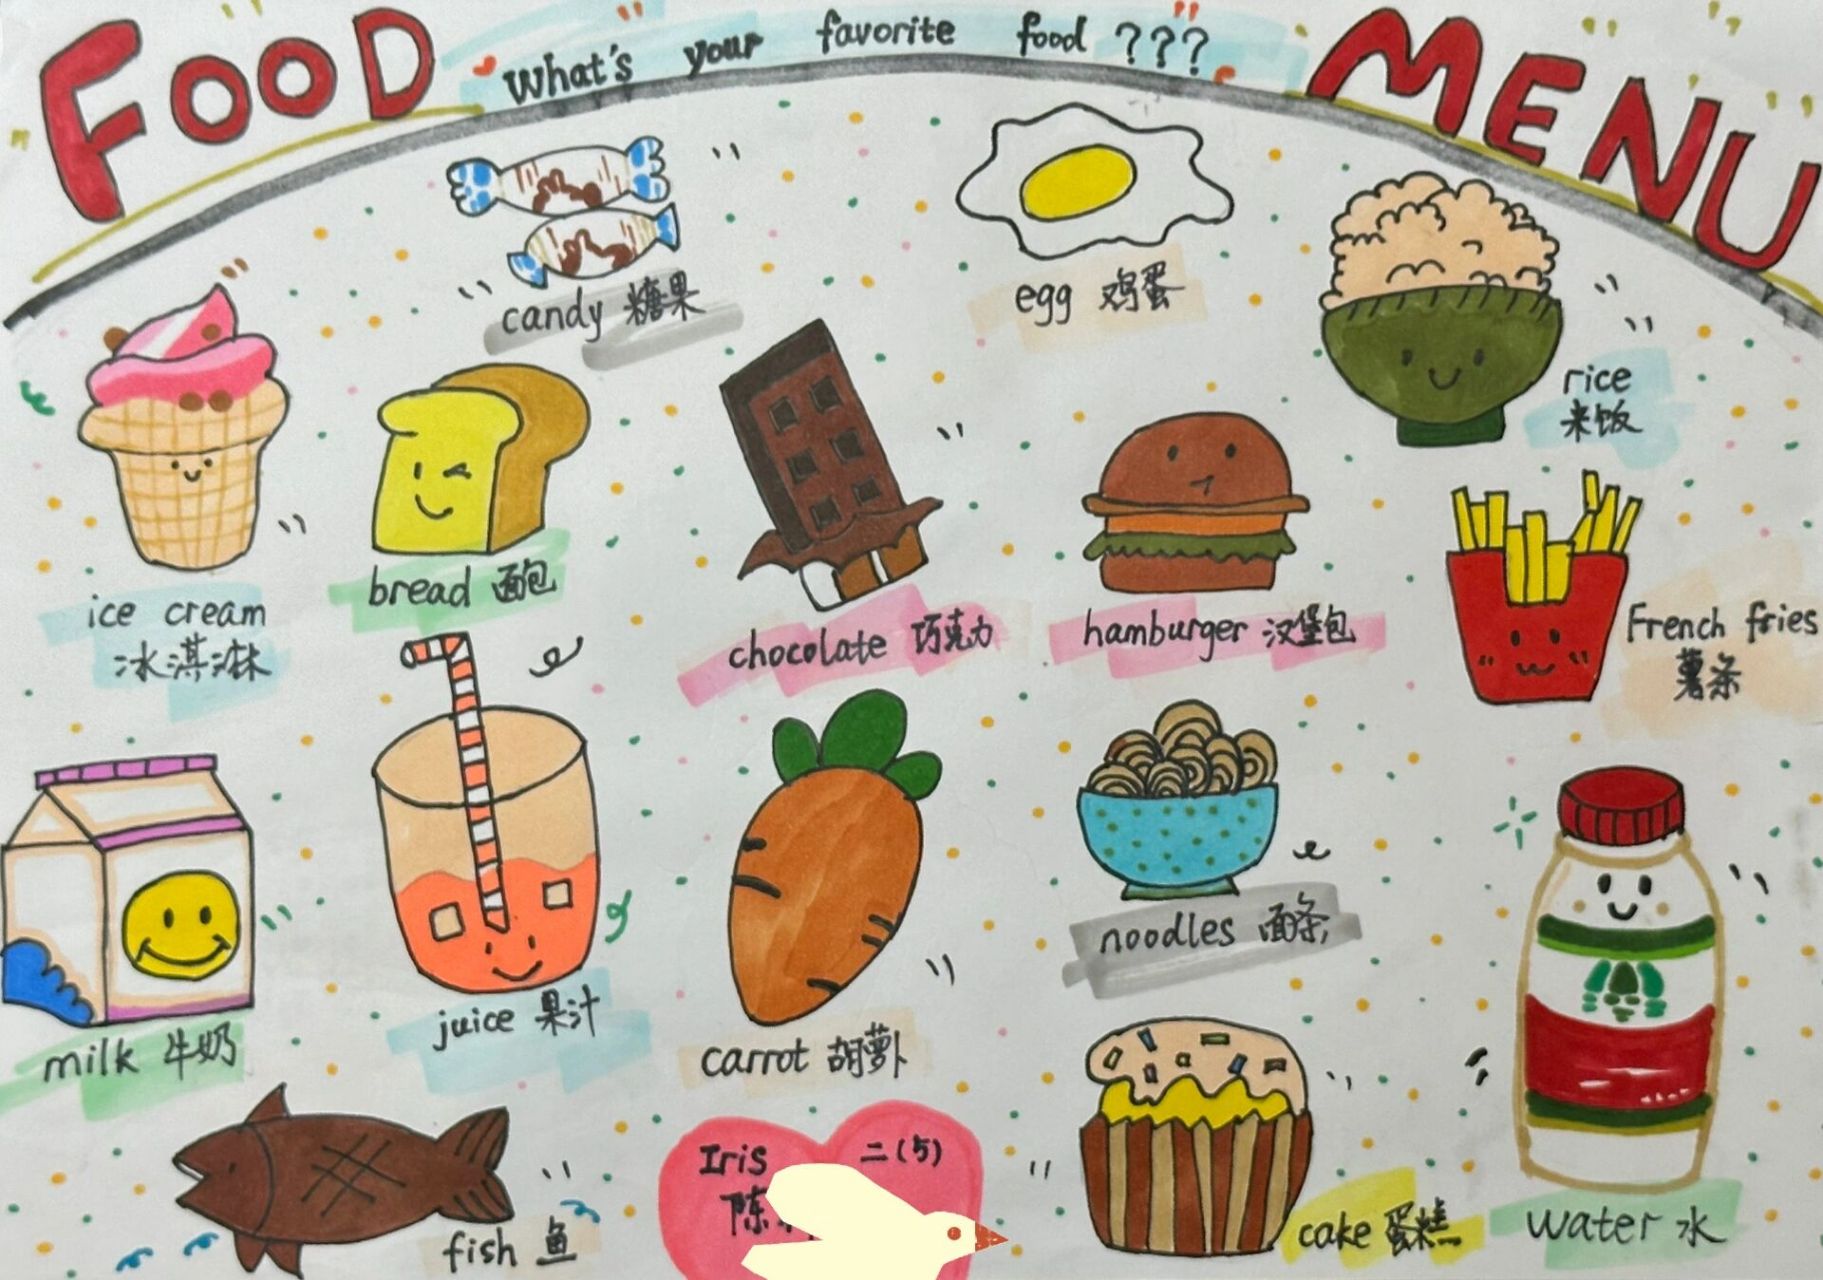 FOOD
What's your favorite food ???
MENU
candy 糖果
egg 鸡蛋
rice
米饭
ice cream
冰淇淋
bread 面包
chocolate 巧克力
hamburger 汉堡包
French fries
薯条
milk 牛奶
juice 果汁
carrot 胡萝卜
noodles 面条
fish 鱼
Iris 二(5)
陈
cake 蛋糕
water 水